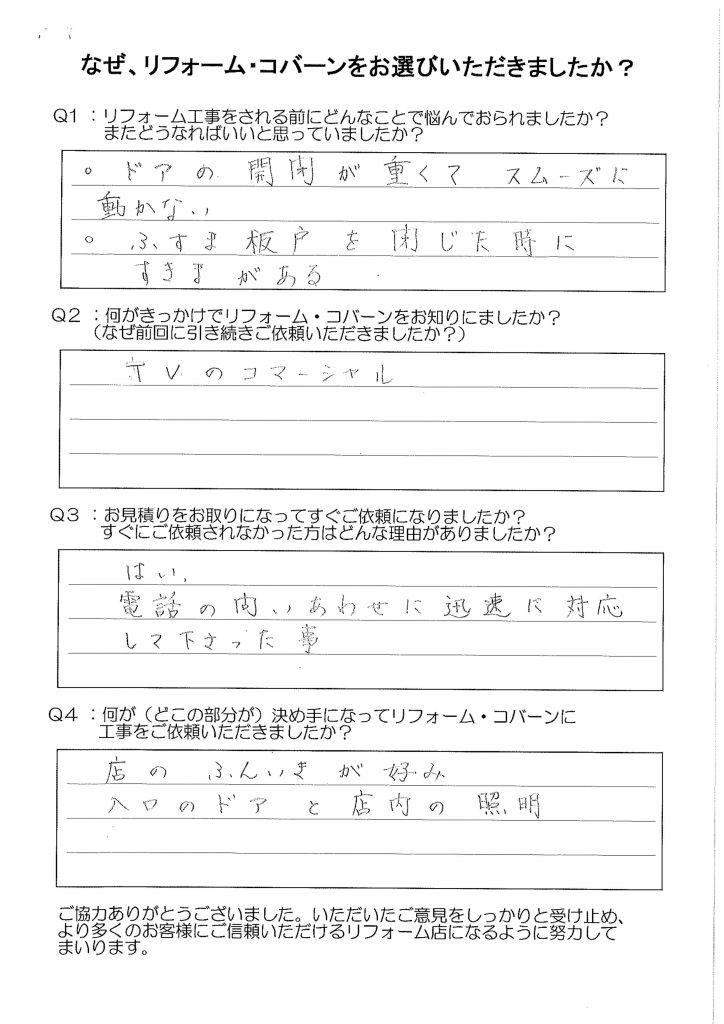 なぜ、リフォーム・コバーンをお選びいただきましたか？
Q1：リフォーム工事をされる前にどんなことで悩んでおられましたか？
またどうなればいいと思っていましたか？
○ ドアの開閉が重くて スムーズに
動かない
○ ふすま板戸を閉じた時に
すきまがある
Q2：何がきっかけでリフォーム・コバーンをお知りにましたか？
（なぜ前回に引き続きご依頼いただきましたか？）
TVのコマーシャル
Q3：お見積りをお取りになってすぐご依頼になりましたか？
すぐにご依頼されなかった方はどんな理由がありましたか？
はい、
電話の問いあわせに迅速に対応
して下さった事
Q4：何が（どこの部分が）決め手になってリフォーム・コバーンに
工事をご依頼いただきましたか？
店のふんいきが好み
入口のドアと店内の照明
ご協力ありがとうございました。いただいたご意見をしっかりと受け止め、
より多くのお客様にご信頼いただけるリフォーム店になるように努力して
まいります。